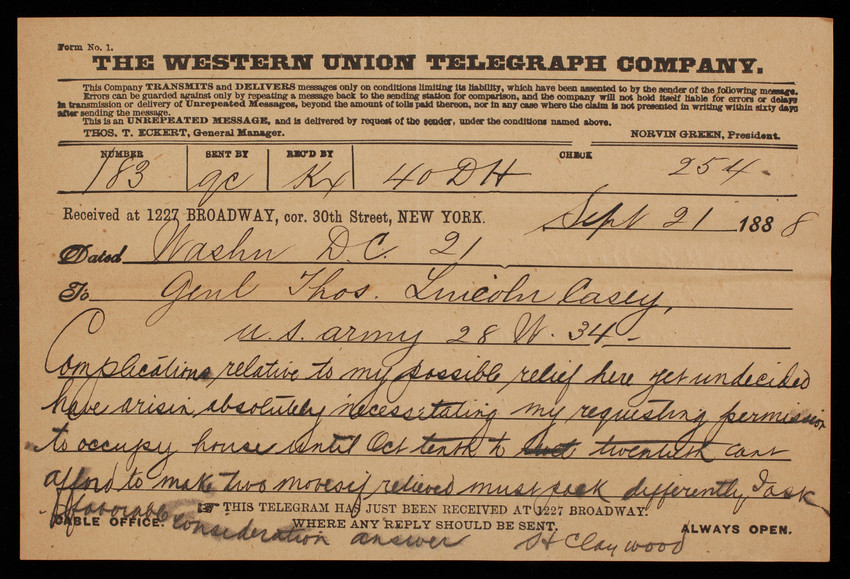 Form No. 1.
THE WESTERN UNION TELEGRAPH COMPANY.
This Company TRANSMITS and DELIVERS messages only on conditions limiting its liability, which have been assented to by the sender of the following message.
Errors can be guarded against only by repeating a message back to the sending station for comparison, and the company will not hold itself liable for errors or delays
in transmission or delivery of Unrepeated Messages, beyond the amount of tolls paid thereon, nor in any case where the claim is not presented in writing within sixty days
after sending the message.
This is an UNREPEATED MESSAGE, and is delivered by request of the sender, under the conditions named above.
THOS. T. ECKERT, General Manager. NORVIN GREEN, President.
NUMBER SENT BY REC'D BY CHECK
183 gc Kx 40 DH 254
Received at 1227 BROADWAY, cor. 30th Street, NEW YORK. Sept 21 1888
Dated Washn D.C. 21
To Genl Thos. Lincoln Casey,
U.S. army 28 W. 34-
Complications relative to my possible relief here yet undecided
have arisin absolutely necessitating my requesting permission
to occupy house until Oct tenth to twentieth cant
afford to make two moves if relieved must pack differently I ask
favorable consideration answer
☞ THIS TELEGRAM HAS JUST BEEN RECEIVED AT 1227 BROADWAY.
CABLE OFFICE. WHERE ANY REPLY SHOULD BE SENT. ALWAYS OPEN.
H Clay wood